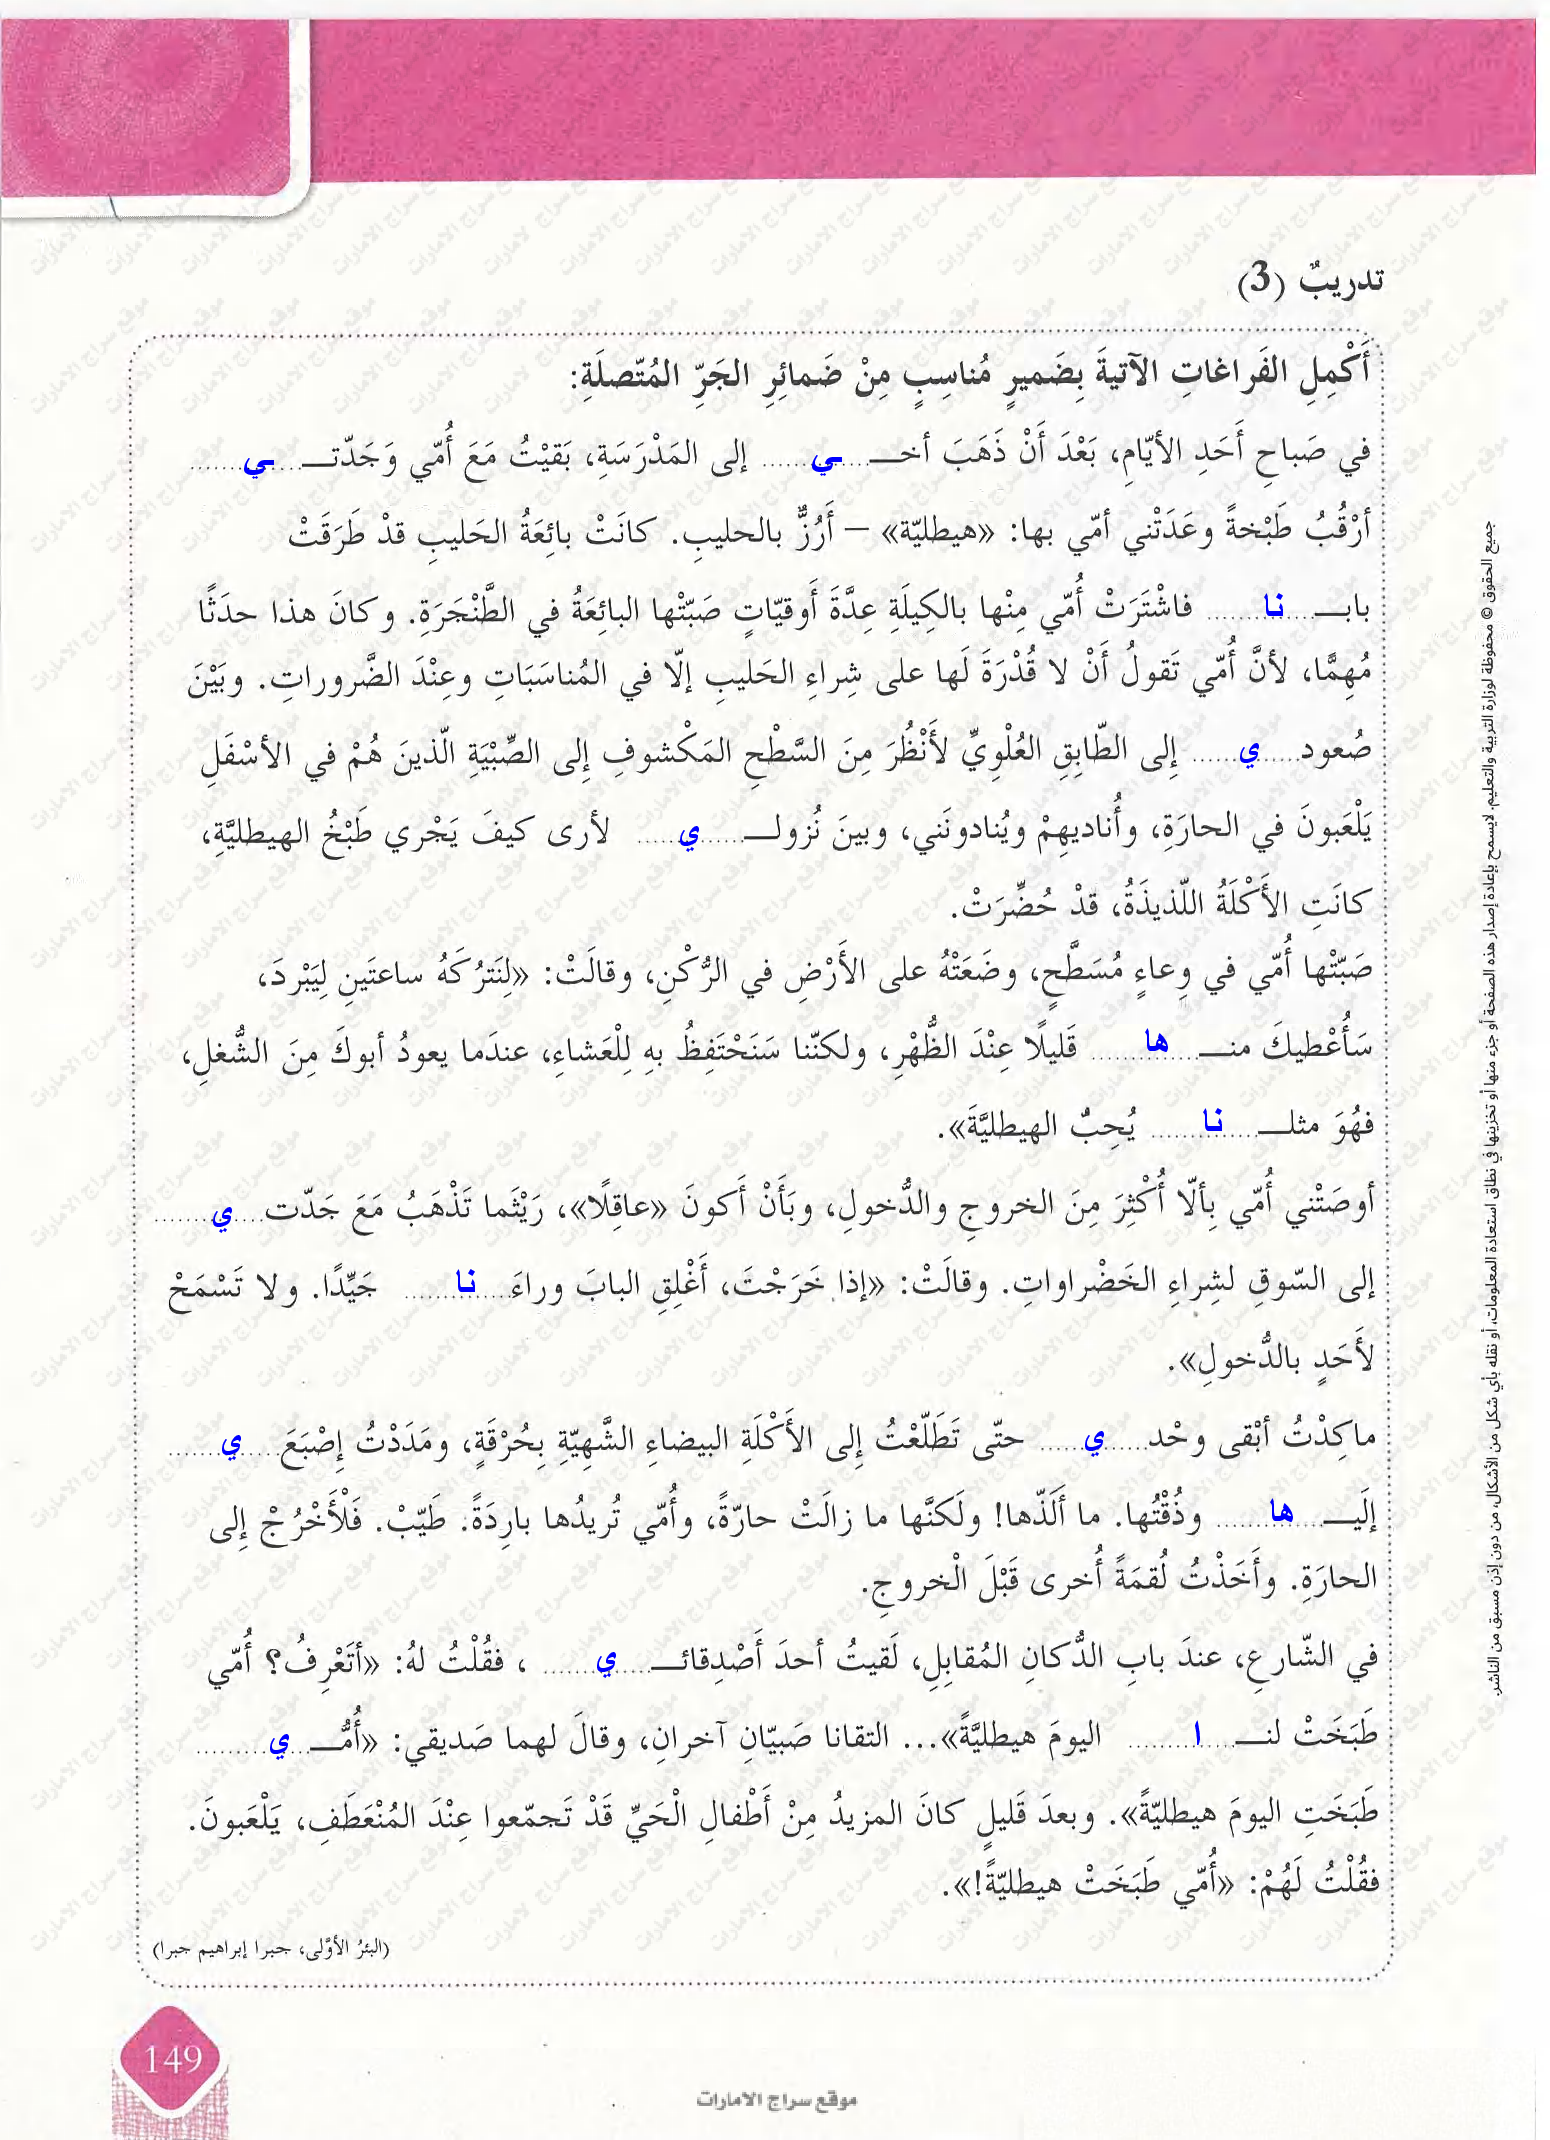 تدريبٌ (3)
أَكْمِلِ الفَراغاتِ الآتيةَ بِضَميرٍ مُناسِبٍ مِنْ ضَمائِرِ الجَرِّ المُتّصلَةِ:
في صَباحِ أَحَدِ الأيّامِ، بَعْدَ أَنْ ذَهَبَ أخـــي........ إلى المَدْرَسَةِ، بَقيْتُ مَعَ أُمّي وَجَدّتـــي........
أرْقُبُ طَبْخةً وعَدَتْني أمّي بها: «هيطليّة» – أَرُزٌّ بالحليبِ. كانَتْ بائِعَةُ الحَليبِ قدْ طَرَقَتْ
بابـــنا........ فاشْتَرَتْ أُمّي مِنْها بالكِيلَةِ عِدَّةَ أَوقيّاتٍ صَبّتْها البائِعَةُ في الطَّنْجَرَةِ. وكانَ هذا حدَثًا
مُهِمًّا، لأنَّ أُمّي تَقولُ أَنْ لا قُدْرَةَ لَها على شِراءِ الحَليبِ إلّا في المُناسَبَاتِ وعِنْدَ الضَّروراتِ. وبَيْنَ
صُعودي........ إلى الطّابِقِ العُلْوِيِّ لأَنْظُرَ مِنَ السَّطْحِ المَكْشوفِ إلى الصِّبْيَةِ الّذينَ هُمْ في الأسْفَلِ
يَلْعَبونَ في الحارَةِ، وأُناديهِمْ ويُنادونَني، وبينَ نُزولـــي........ لأرى كيفَ يَجْري طَبْخُ الهيطليَّةِ،
كانَتِ الأَكْلَةُ اللّذيذَةُ، قدْ حُضِّرَتْ.
صَبّتْها أُمّي في وِعاءٍ مُسَطَّحٍ، وضَعَتْهُ على الأَرْضِ في الرُّكْنِ، وقالَتْ: «لِنَتْرُكَهُ ساعتَينِ لِيَبْردَ،
سَأُعْطيكَ منـــها........ قَليلًا عِنْدَ الظُّهْرِ، ولكنّنا سَنَحْتَفِظُ بهِ لِلْعَشاءِ، عندَما يعودُ أبوكَ مِنَ الشُّغلِ،
فهُوَ مثلـــنا........ يُحِبُّ الهيطليَّةَ».
أوصَتْني أُمّي بِألّا أُكْثِرَ مِنَ الخروجِ والدُّخولِ، وبَأَنْ أَكونَ «عاقِلًا»، رَيْثَما تَذْهَبُ مَعَ جَدّتي........
إلى السّوقِ لشِراءِ الخَضْراواتِ. وقالَتْ: «إذا خَرَجْتَ، أَغْلِقِ البابَ وراءَنا........ جَيِّدًا. ولا تَسْمَحْ
لأَحَدٍ بالدُّخولِ».
ماكِدْتُ أبْقى وحْدي........ حتّى تَطَلّعْتُ إلى الأَكْلَةِ البيضاءِ الشَّهِيّةِ بِحُرْقَةٍ، ومَدَدْتُ إصْبَعَي........
إلَيـــها........ وذُقْتُها. ما أَلَذّها! ولَكنَّها ما زالَتْ حارّةً، وأُمّي تُريدُها بارِدَةً. طَيّبْ. فَلْأَخْرُجْ إلى
الحارَةِ. وأَخَذْتُ لُقمَةً أُخرى قَبْلَ الْخروجِ.
في الشّارعِ، عندَ بابِ الدُّكانِ المُقابِلِ، لَقيتُ أحدَ أَصْدِقائـــي........ ، فقُلْتُ لهُ: «أتَعْرِفُ؟ أُمّي
طَبَخَتْ لنـــا........ اليومَ هيطليَّةً»... التقانا صَبيّانِ آخرانِ، وقالَ لهما صَديقي: «أُمُّـــي........
طَبَخَتِ اليومَ هيطليّةً». وبعدَ قَليلٍ كانَ المزيدُ مِنْ أَطْفالِ الْحَيِّ قَدْ تَجمّعوا عِنْدَ المُنْعَطَفِ، يَلْعَبونَ.
فقُلْتُ لَهُمْ: «أُمّي طَبَخَتْ هيطليّةً!».
(البئرُ الأوَّلى، جبرا إبراهيم جبرا)
جميع الحقوق © محفوظة لوزارة التربية والتعليم. لايسمح بإعادة إصدار هذه الصفحة أو جزء منها أو تخزينها في نطاق استعادة المعلومات، أو نقله بأي شكل من الأشكال، من دون إذن مسبق من الناشر.
149
موقع سراج الامارات